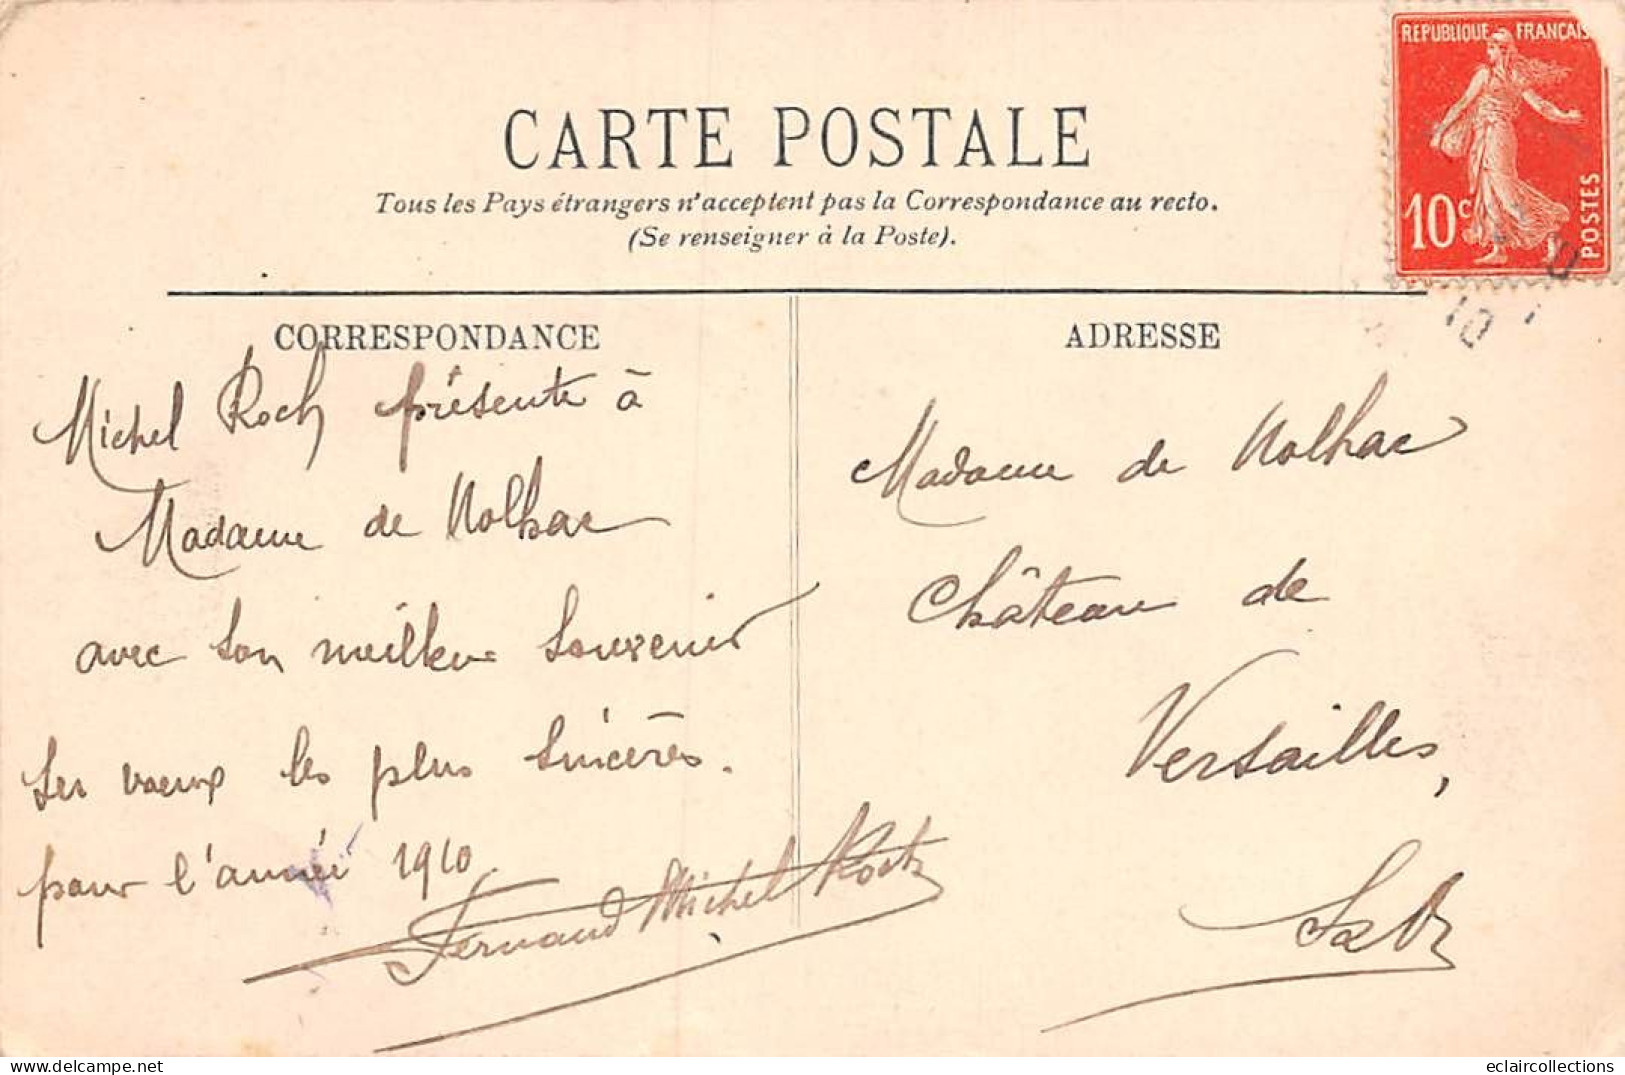 REPUBLIQUE FRANCAIS
10c
POSTES
CARTE POSTALE
Tous les Pays étrangers n'acceptent pas la Correspondance au recto.
(Se renseigner à la Poste).
10
CORRESPONDANCE
Michel Roch présente à
Madame de Nolhac
avec son meilleur souvenir
ses vœux les plus sincères.
pour l'année 1910
Fernand Michel Roch
ADRESSE
Madame de Nolhac
Château de
Versailles,
S et O
Delcampe.net
eclaircollections